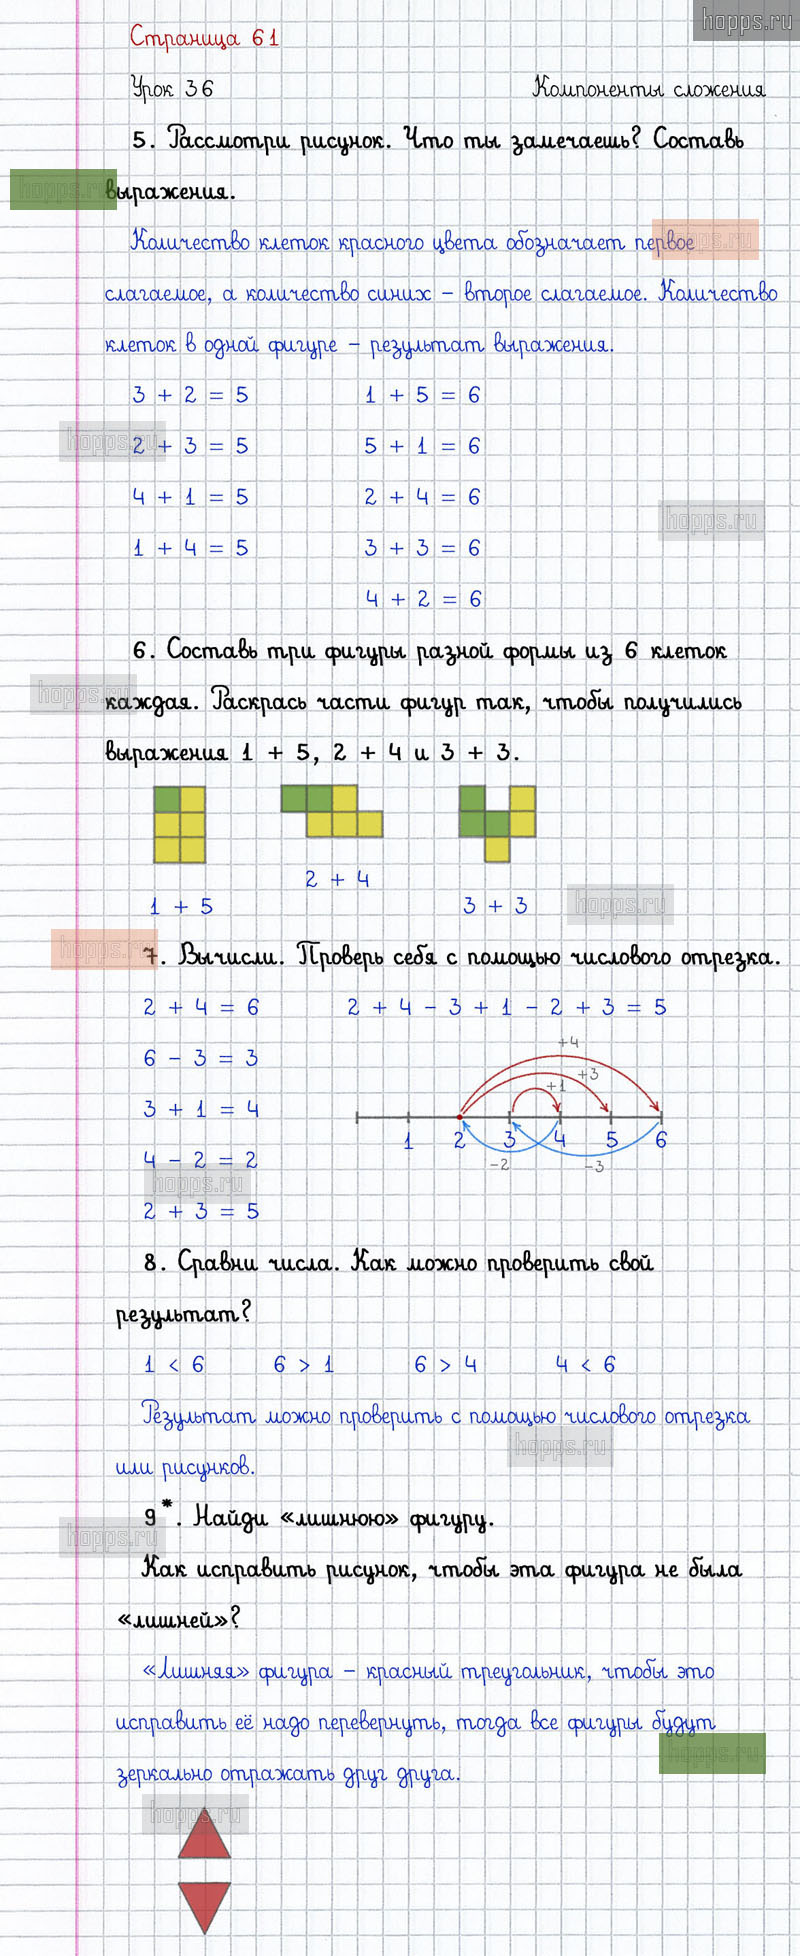 hopps.ru
Страница 61
Урок 36 Компоненты сложения
5. Рассмотри рисунок. Что ты замечаешь? Составь
hopps.ru
выражения.
Количество клеток красного цвета обозначает первое
hopps.ru
слагаемое, а количество синих – второе слагаемое. Количество
клеток в одной фигуре – результат выражения.
3 + 2 = 5 1 + 5 = 6
hopps.ru
2 + 3 = 5 5 + 1 = 6
4 + 1 = 5 2 + 4 = 6
hopps.ru
1 + 4 = 5 3 + 3 = 6
4 + 2 = 6
6. Составь три фигуры разной формы из 6 клеток
hopps.ru
каждая. Раскрась части фигур так, чтобы получились
выражения 1 + 5, 2 + 4 и 3 + 3.
2 + 4
1 + 5 3 + 3
hopps.ru
hopps.ru
7. Вычисли. Проверь себя с помощью числового отрезка.
2 + 4 = 6 2 + 4 – 3 + 1 – 2 + 3 = 5
+4
6 – 3 = 3
+3
+1
3 + 1 = 4
1 2 3 4 5 6
4 – 2 = 2
–2 –3
hopps.ru
2 + 3 = 5
8. Сравни числа. Как можно проверить свой
результат?
1 < 6 6 > 1 6 > 4 4 < 6
Результат можно проверить с помощью числового отрезка
hopps.ru
или рисунков.
9*. Найди «лишнюю» фигуру.
hopps.ru
Как исправить рисунок, чтобы эта фигура не была
«лишней»?
«Лишняя» фигура – красный треугольник, чтобы это
исправить её надо перевернуть, тогда все фигуры будут
hopps.ru
зеркально отражать друг друга.
hopps.ru